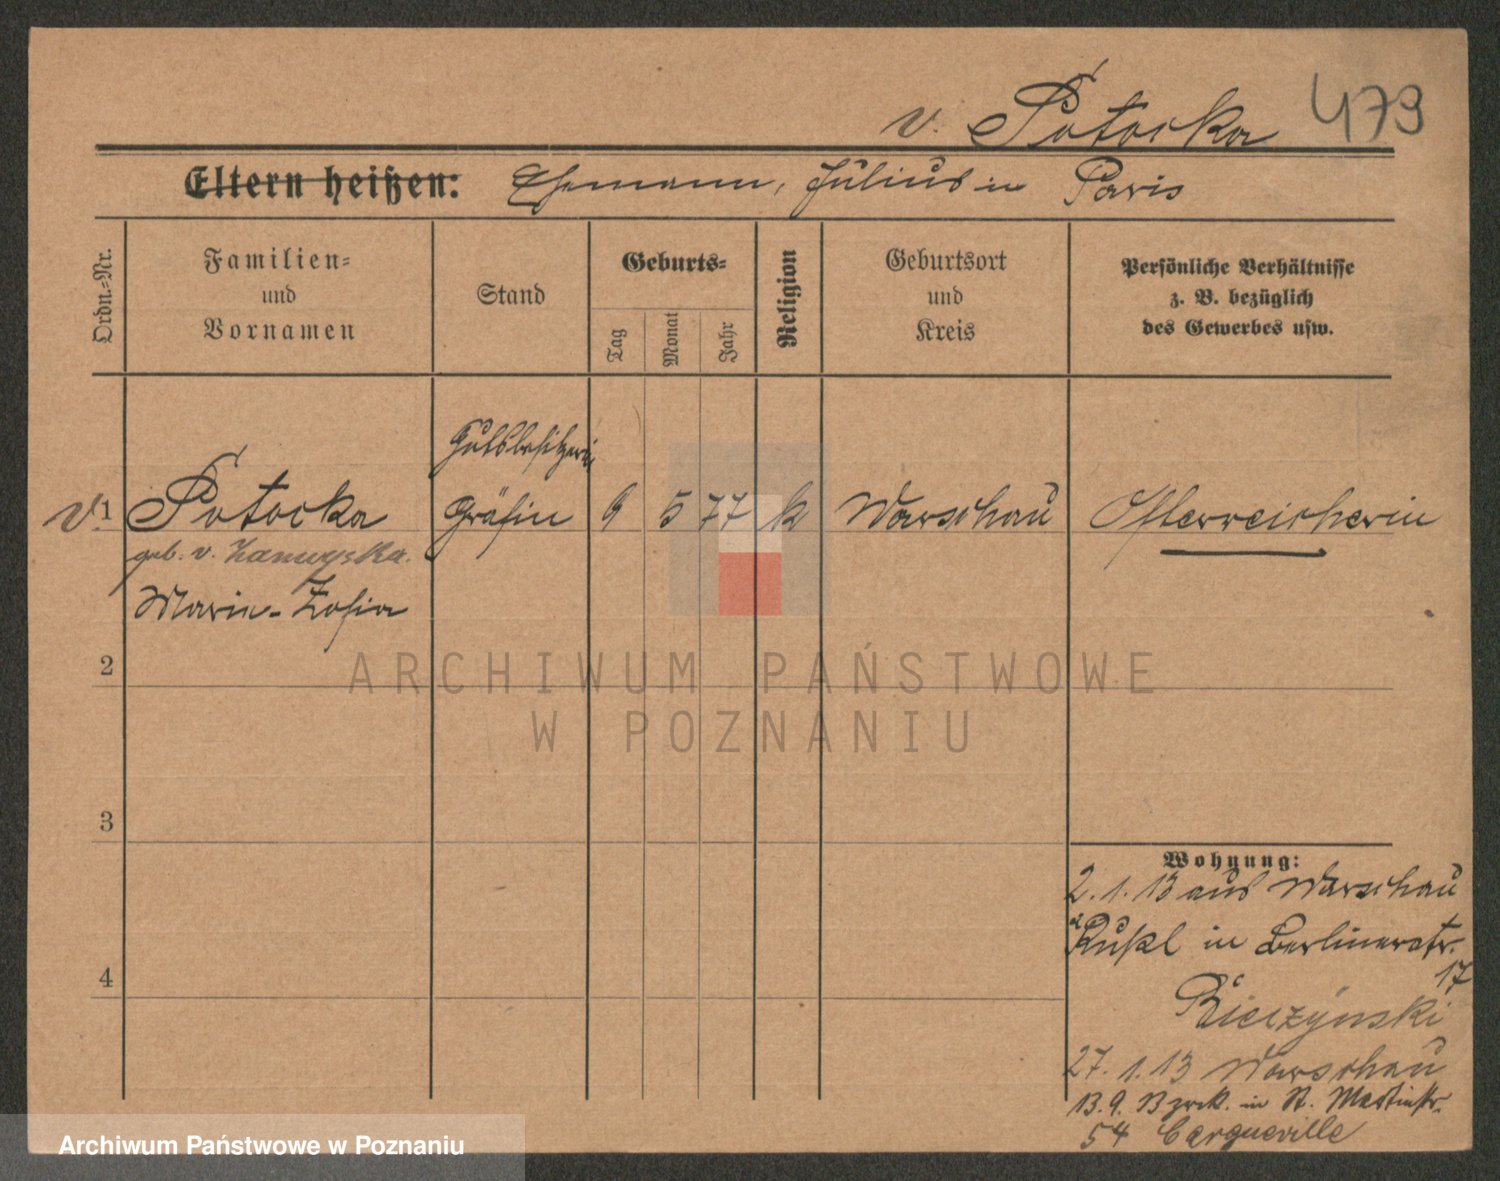 v. Potocka 479
Eltern heißen: Ehemann, Julius in Paris
Ordn.-Nr.
Familien-
und
Vornamen
Stand
Geburts-
Tag
Monat
Jahr
Religion
Geburtsort
und
Kreis
Persönliche Verhältnisse
z. B. bezüglich
des Gewerbes usw.
Gutsbesitzerin
v. 1 Potocka Gräfin 9 5 77 k Warschau Österreicherin
geb. v. Zamoyska.
Maria-Zofia
2
3
4
Wohnung:
2.1.13 aus Warschau
Rußl in Berlinerstr.
17
27.1.13 Warschau
13.9. 13 zrck. in St. Martinstr.
54
ARCHIWUM PAŃSTWOWE
W POZNANIU
Archiwum Państwowe w Poznaniu